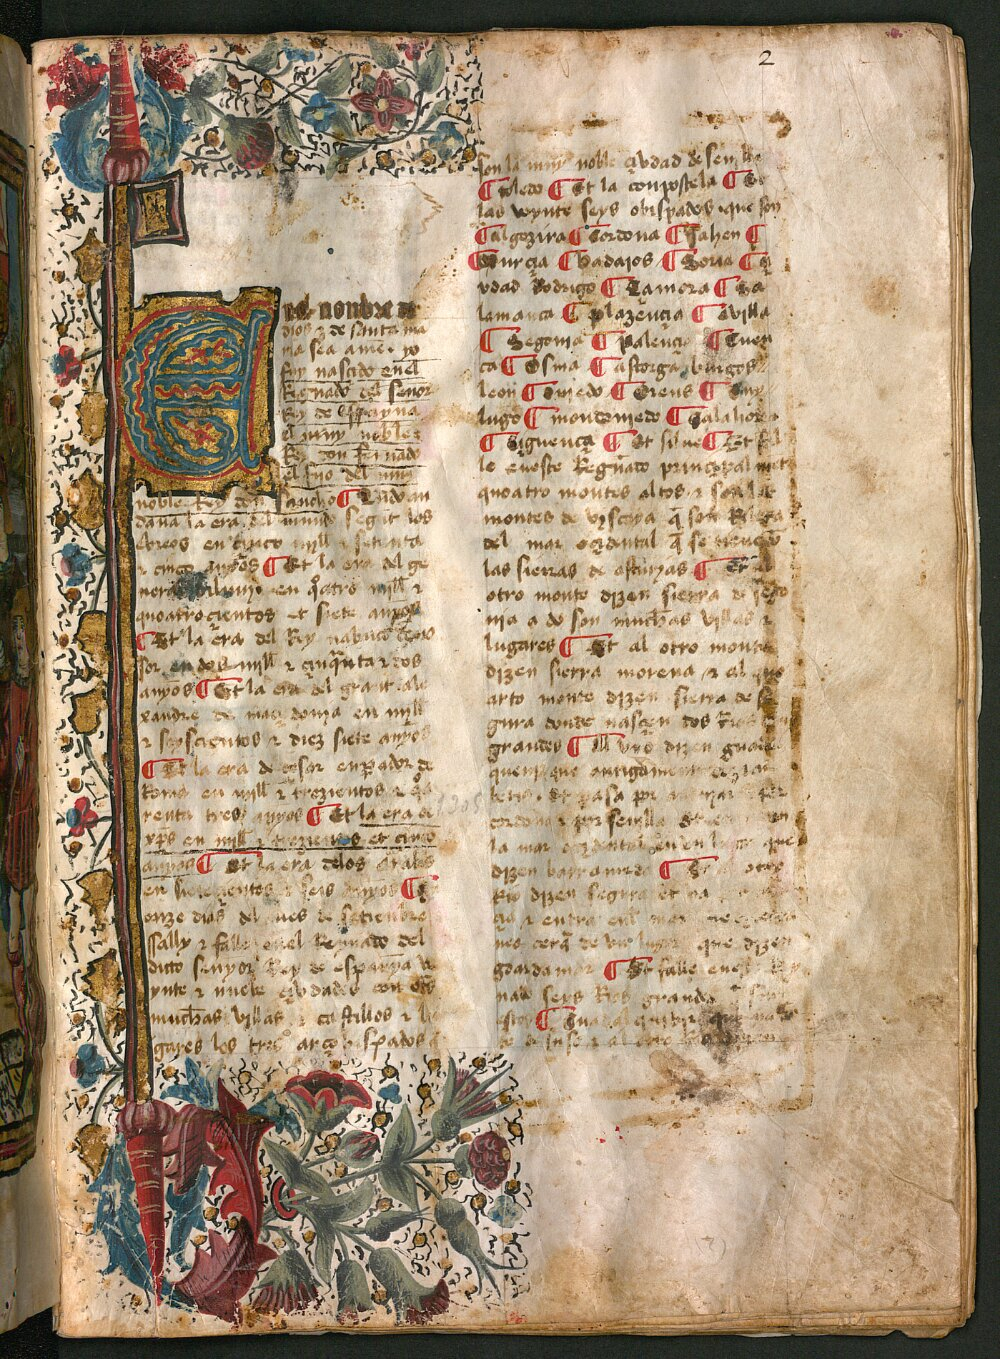 2
En el nonbre de
dios z de santa ma
ria sea ame. yo
fuy nascido en el
Regnado del señor
Rey de Espayna
el muy noble
Rey don Fernãdo
el fijo del muy
noble Rey don Sancho ¶ Quãdo an
daua la era del mundo segũt los
Ebreos en cinco mill z setenta
z cinco anyos ¶ Et la era del ge
neral diluuio en q̃tro mill z
quoatrocientos et siete anyos
¶ Et la era del Rey nabuco dono
sor en dos mill z cinq̃nta z dos
anyos ¶ Et la era del grant ale
xandre de maçidonia en mill
z seyscientos z diez siete anyos
¶ Et la era de cesar enperador de
Roma en mill z trezientos z q̃
renta tres anyos ¶ Et la era de
xp̃s en mill z trezientos et cinco
anyos ¶ Et la era delos arabes
en setecientos z seis anyos ¶ A
onze dias del mes de setienbre
Sally z falle en el Regnado del
dicto senyor Rey de espanya ve
ynte z nueue çiudades con otras
muchas villas z castillos z lu
gares los tres arçobispados
son la muy noble çiudad de seuilla
¶ Toledo ¶ Et la conpostela ¶ Et
las veynte seys obispados que son
¶ algezira ¶ Cordoua ¶ Jahen ¶
Murçia ¶ badajos ¶ Soria ¶ Çi
vdad Rodrigo ¶ Çamora ¶ Sa
lamanca ¶ plazençia ¶ Auilla
¶ Segouia ¶ Palençia ¶ Cuen
ca ¶ Osma ¶ astorga burgos
leon ¶ Ouiedo ¶ Orens ¶ Tuy
lugo ¶ mondonyedo ¶ Calahorra
¶ Siguença ¶ Et silue ¶ Et
le en este Regnãdo principalment
quoatro montes altos z son los
montes de viscaya q̃
del mar ocçidental q̃ se tienen
las sierras de asturias ¶ Et
otro monte dizen sierra de sego
uia a do son muchas villas z
lugares ¶ Et al otro monte
dizen sierra morena z el qu
arto monte dizen sierra de se
gura donde nasçen dos Rios
grandes ¶ Al vno dizen guadal
quenir que antigament dezian
betis. Et pasa por
cordoua z por seuilla
la mar ocçidental en vn lugar que
dizen barrameda ¶ Et al otro
Rio dizen segura et
çia z entra en el mar
neo çerca de vn lugar que dizen
goardamar ¶ Et falle en est Reg
nado seys Rios grandes
estos ¶ Guadalquibir